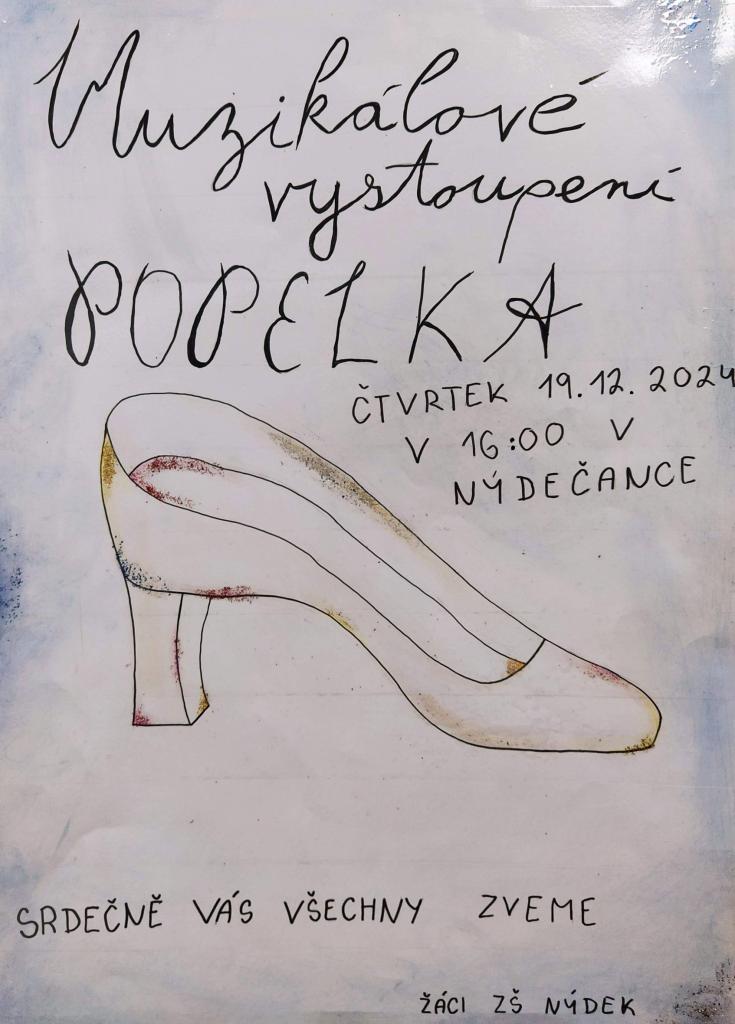 Muzikálové
vystoupení
POPELKA
ČTVRTEK 19.12.2024
V 16:00 V
NÝDEČANCE
SRDEČNĚ VÁS VŠECHNY ZVEME
ŽÁCI ZŠ NÝDEK